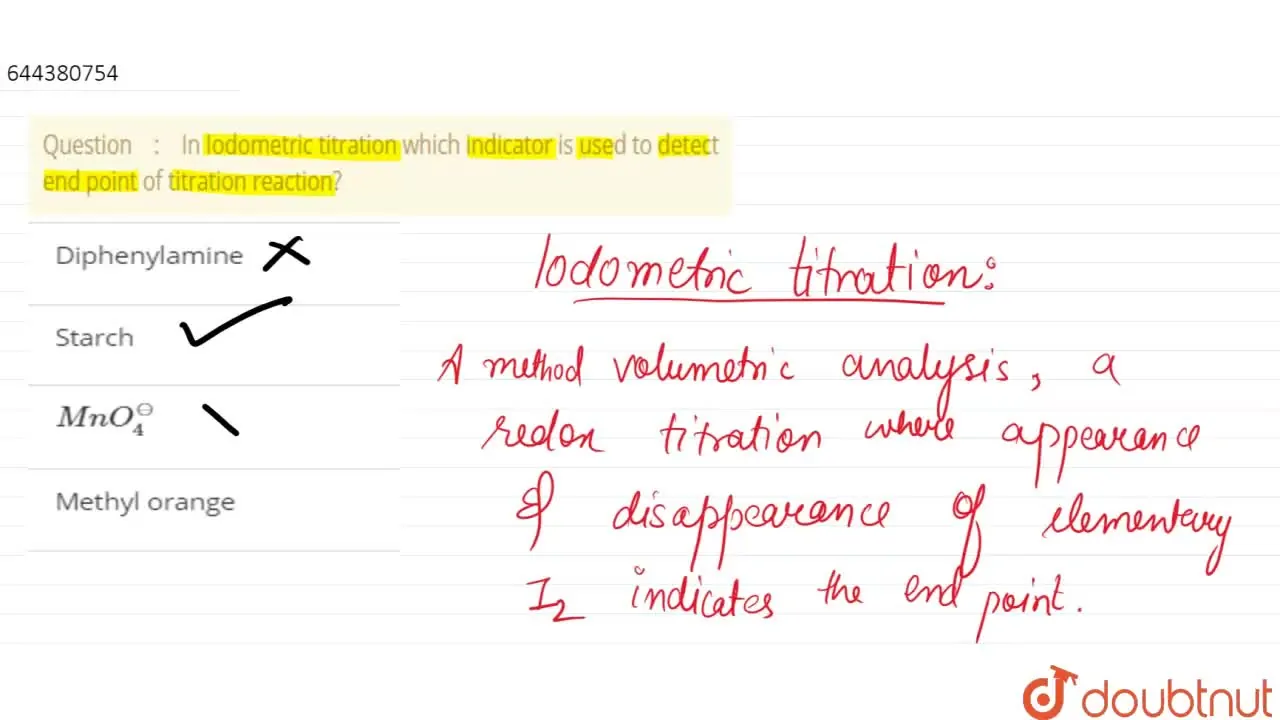 644380754
Question : In Iodometric titration which indicator is used to detect
end point of titration reaction?
Diphenylamine
Starch
MnO₄⊖
Methyl orange
Iodometric titration:
A method volumetric analysis, a
redox titration where appearance
& disappearance of elementary
I₂ indicates the end point.
doubtnut